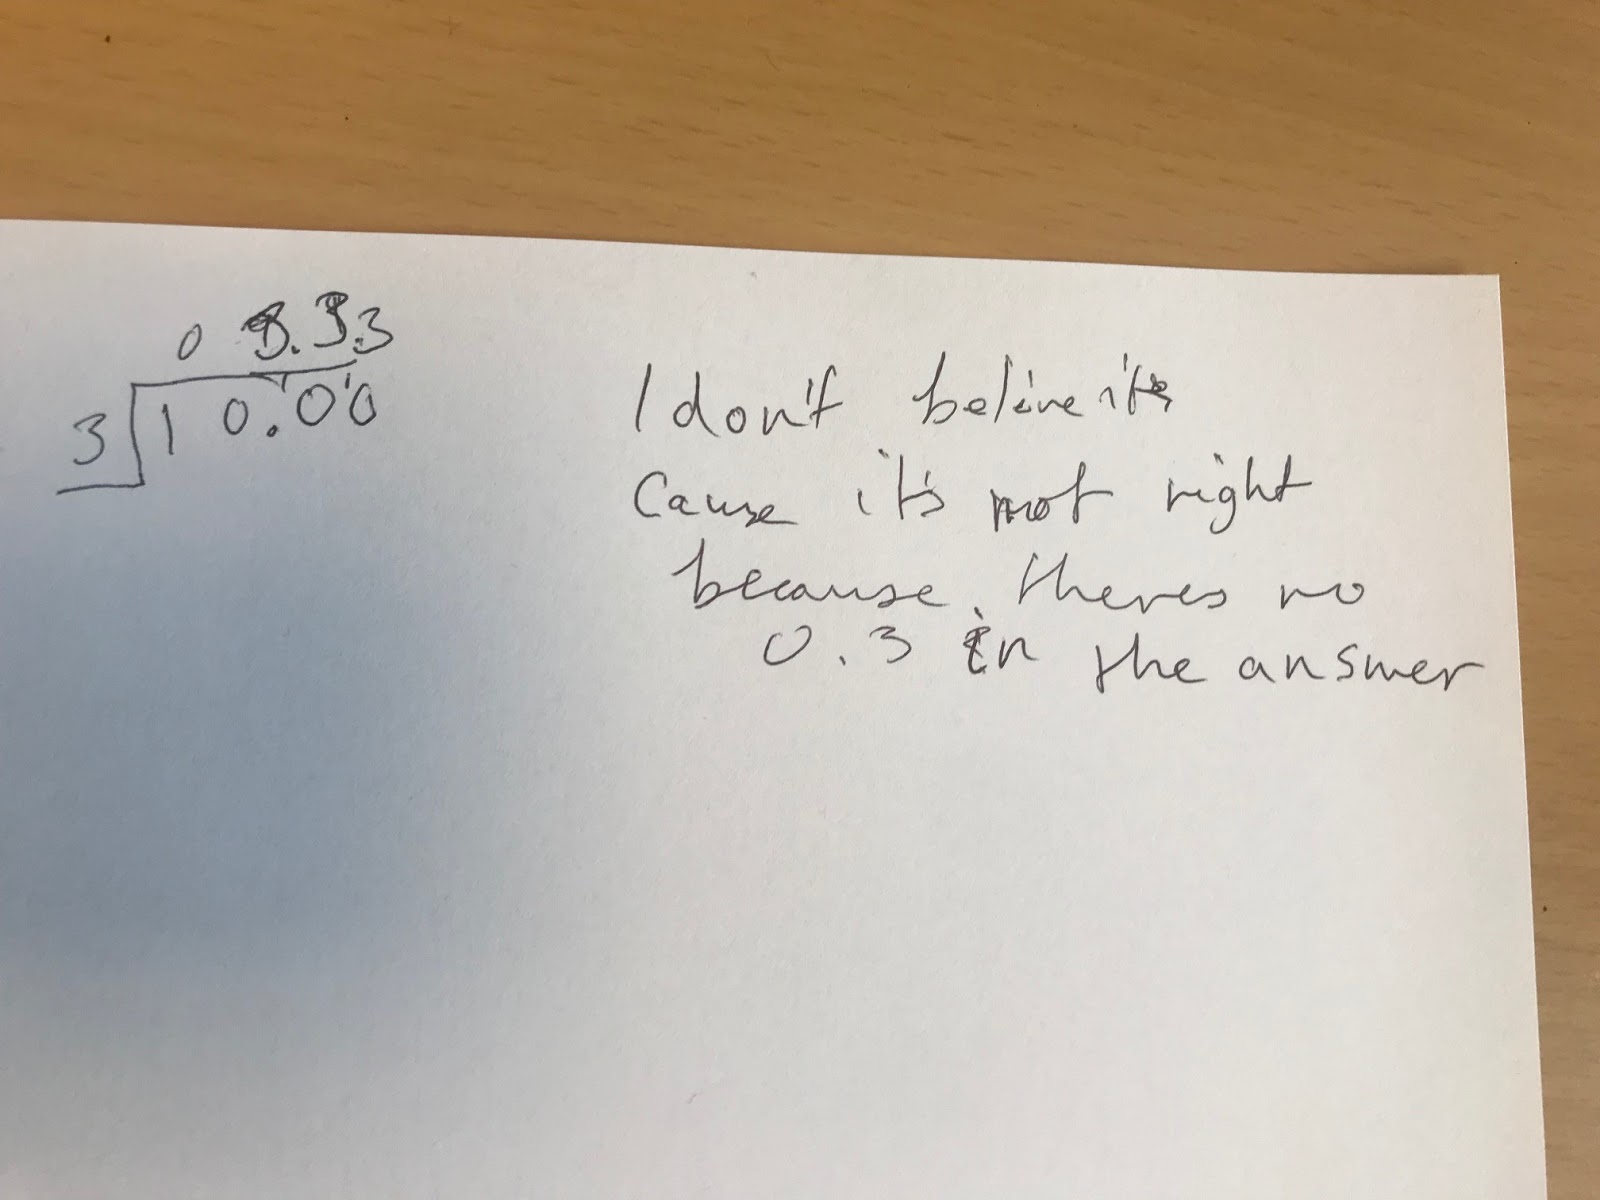 0 3.33
3 10.00
I don't belive it
Cause it's not right
because. theres no
0.3 in the answer